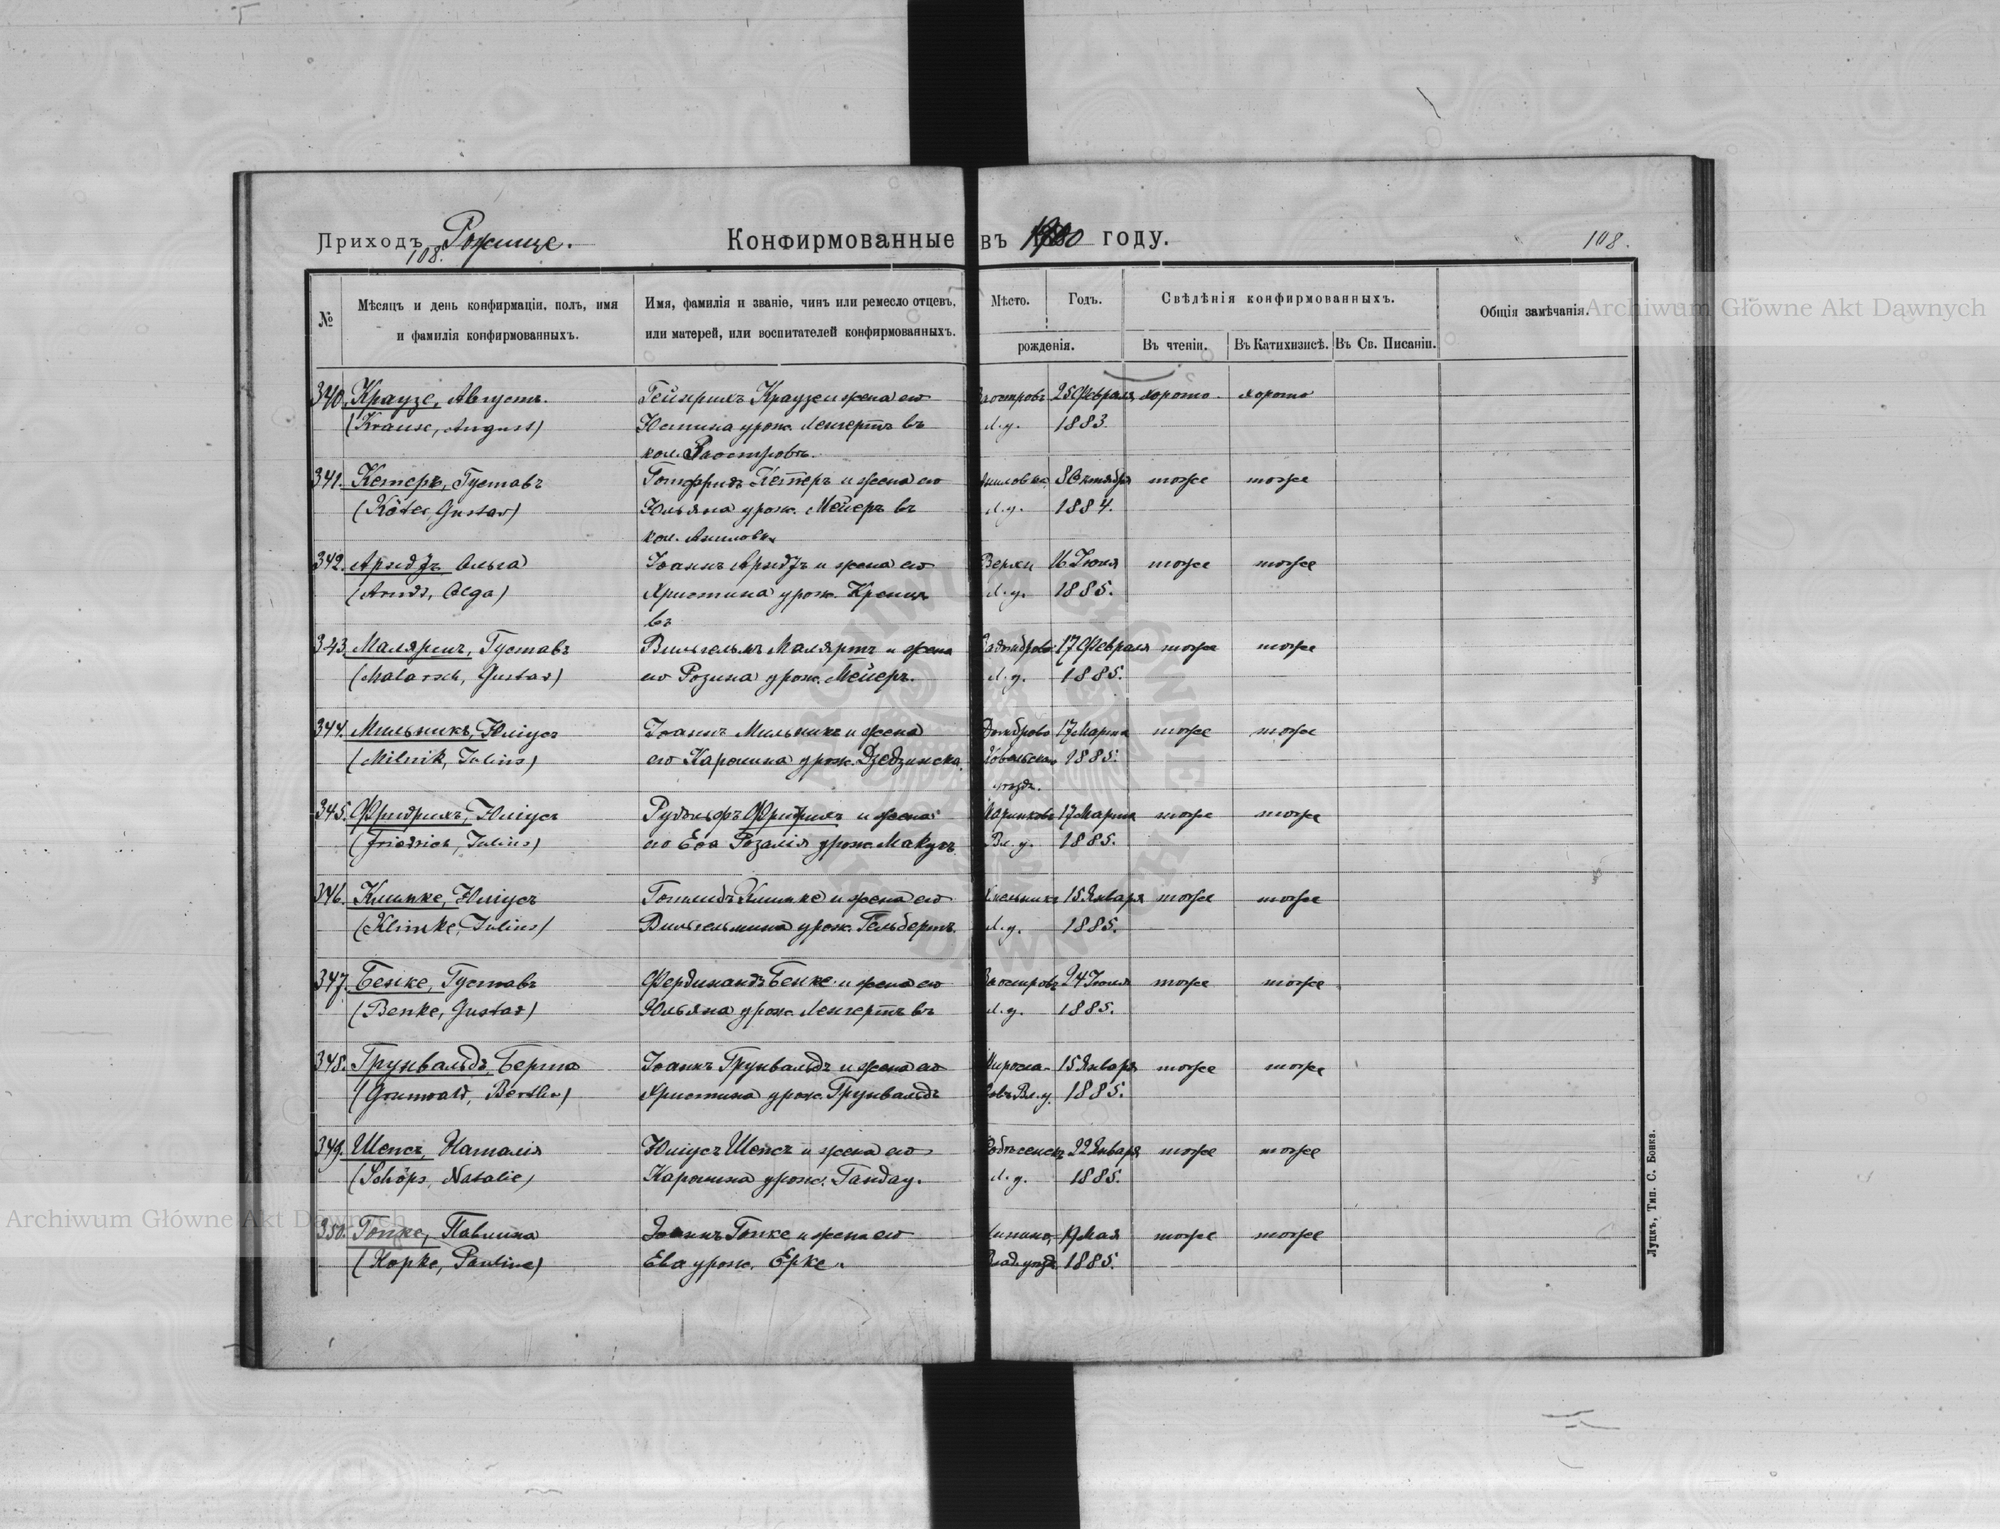 Приходъ Рожище.
108.
Конфирмованные въ 1900 году.
108.
№
Мѣсяцъ и день конфирмаціи, полъ, имя и фамилія конфирмованныхъ.
Имя, фамилія и званіе, чинъ или ремесло отцевъ, или матерей, или воспитателей конфирмованныхъ.
Мѣсто.
Годъ.
рожденія.
Свѣдѣнія конфирмованныхъ.
Въ чтеніи.
Въ Катихизисѣ.
Въ Св. Писаніи.
Общія замѣчанія.
340. Краузе, Августъ. Гейнрихъ Краузе и жена его 25 Февраля хорошо хорошо
(Krause, August) Юстина урож. Ленгертъ въ Л.у. 1883.
кол.
341. Кетеръ, Густавъ Готфридъ Кетеръ и жена его 8 Октября тоже тоже
(Köter, Gustav) Юльяна урож. Мейеръ въ Л.у. 1884.
кол.
342. Арндтъ Ольга Іоаннъ Арндтъ и жена его Верхи 16 Іюля тоже тоже
(Arndt, Olga) Христина урож. Л.у. 1885.
въ
343. Маляршъ, Густавъ Вильгельмъ и жена 17 Февраля тоже тоже
(Malarsch, Gustav) его Розина урож. Мейеръ. Л.у. 1885.
344. Мильникъ, Юліусъ Іоаннъ Мильникъ и жена Домброво 17 Марта тоже тоже
(Milnik, Julius) его Каролина урож. Дзедзинска. 1885.
уѣзд.
345. Фридрихъ, Юліусъ Рудольфъ Фридрихъ и жена 17 Марта тоже тоже
(Friedrich, Julius) его Ева Розалія урож. Вл.у. 1885.
346. Климке, Юліусъ Готлибъ Климке и жена его 15 Января тоже тоже
(Klimke, Julius) Вильгельмина урож. Гельбертъ. Л.у. 1885.
347. Бенке, Густавъ Фердинандъ Бенке и жена его 24 Іюля тоже тоже
(Benke, Gustav) Юльяна урож. Ленгертъ въ Л.у. 1885.
348. Грунвальдъ, Берта Іоаннъ Грунвальдъ и жена его 15 Января тоже тоже
(Grunwald, Bertha) Христина урож. Грунвальдъ Вл.у. 1885.
349. Шепсъ, Наталія Юліусъ Шепсъ и жена его 22 Января тоже тоже
(Schöps, Natalie) Каролина урож. Гандау. Л.у. 1885.
350. Гопке, Павлина Іоаннъ Гопке и жена его Мая тоже тоже
(Hopke, Pauline) Ева урож. Ерке. 1885.
Луцкъ, Тип. С. Бонка.
Archiwum Główne Akt Dawnych
Archiwum Główne Akt Dawnych